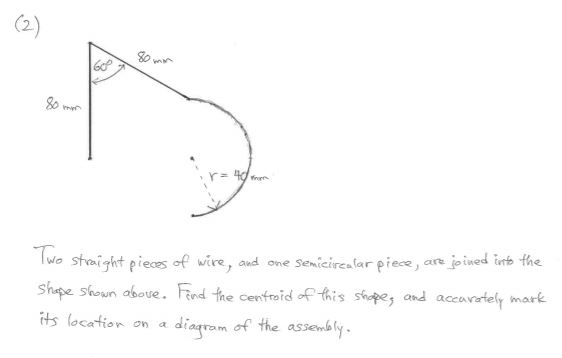 (2)
80 mm
60°
80 mm
r = 40 mm
Two straight pieces of wire, and one semicircular piece, are joined into the
shape shown above. Find the centroid of this shape, and accurately mark
its location on a diagram of the assembly.